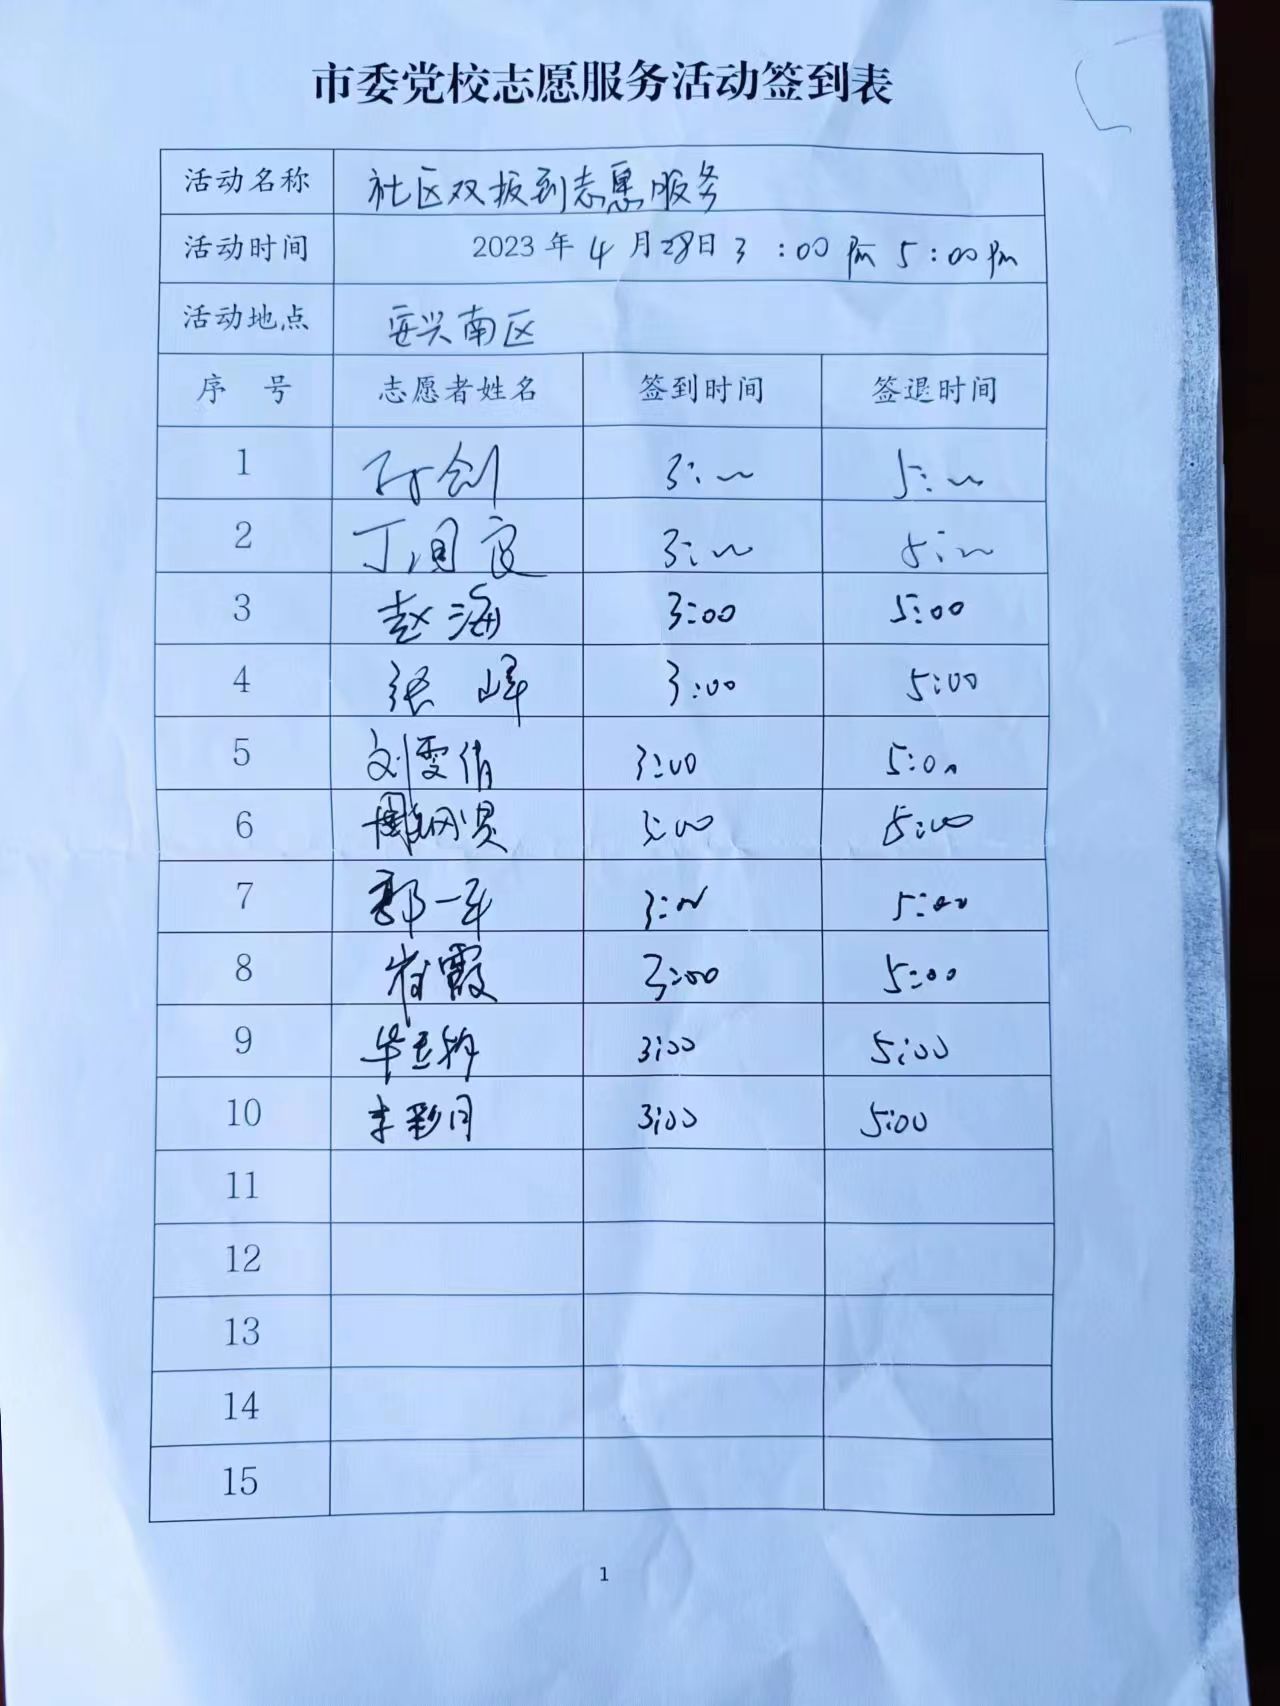 市委党校志愿服务活动签到表
活动名称 社区双报到志愿服务
活动时间 2023 年 4 月 28 日 3 :00 5:00
活动地点 安兴南区
序 号 志愿者姓名 签到时间 签退时间
1 孙剑 3:00 5:00
2 丁国良 3:00 5:00
3 赵海 3:00 5:00
4 张峰 3:00 5:00
5 刘雯倩 3:00 5:00
6 3:00 5:00
7 郭一平 3:00 5:00
8 崔霞 3:00 5:00
9 3:00 5:00
10 李彩月 3:00 5:00
11
12
13
14
15
1